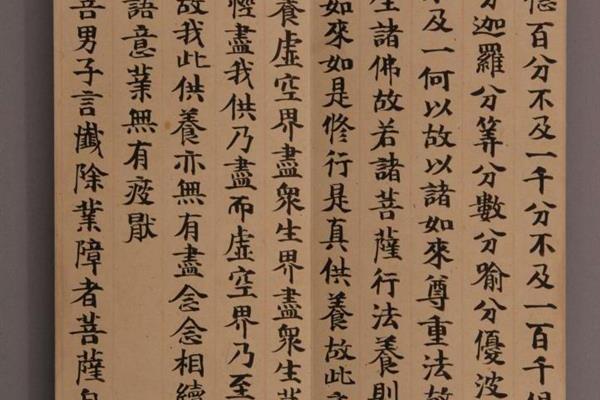 百分不及一千分不及一百千俱
分迦羅分筭分數分喻分優波
不及一何以故以諸如來尊重法故
生諸佛故若諸菩薩行法養則
如來如是修行是真供養故此
養虛空界盡衆生界盡衆生業
盡我供乃盡而虛空界乃至
故我此供養亦無有盡念念相續
語意業無有疲厭
善男子言懺除業障者菩薩自